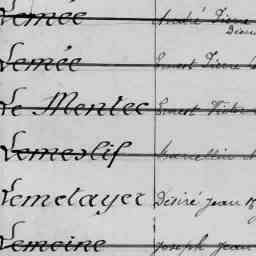 Lemée André Pierre
Lemée Ernest Pierre
Le Mentec Ernest Victor
Lemeslif Marcellin
Lemetayer Désiré Jean
Lemoine Joseph Jean